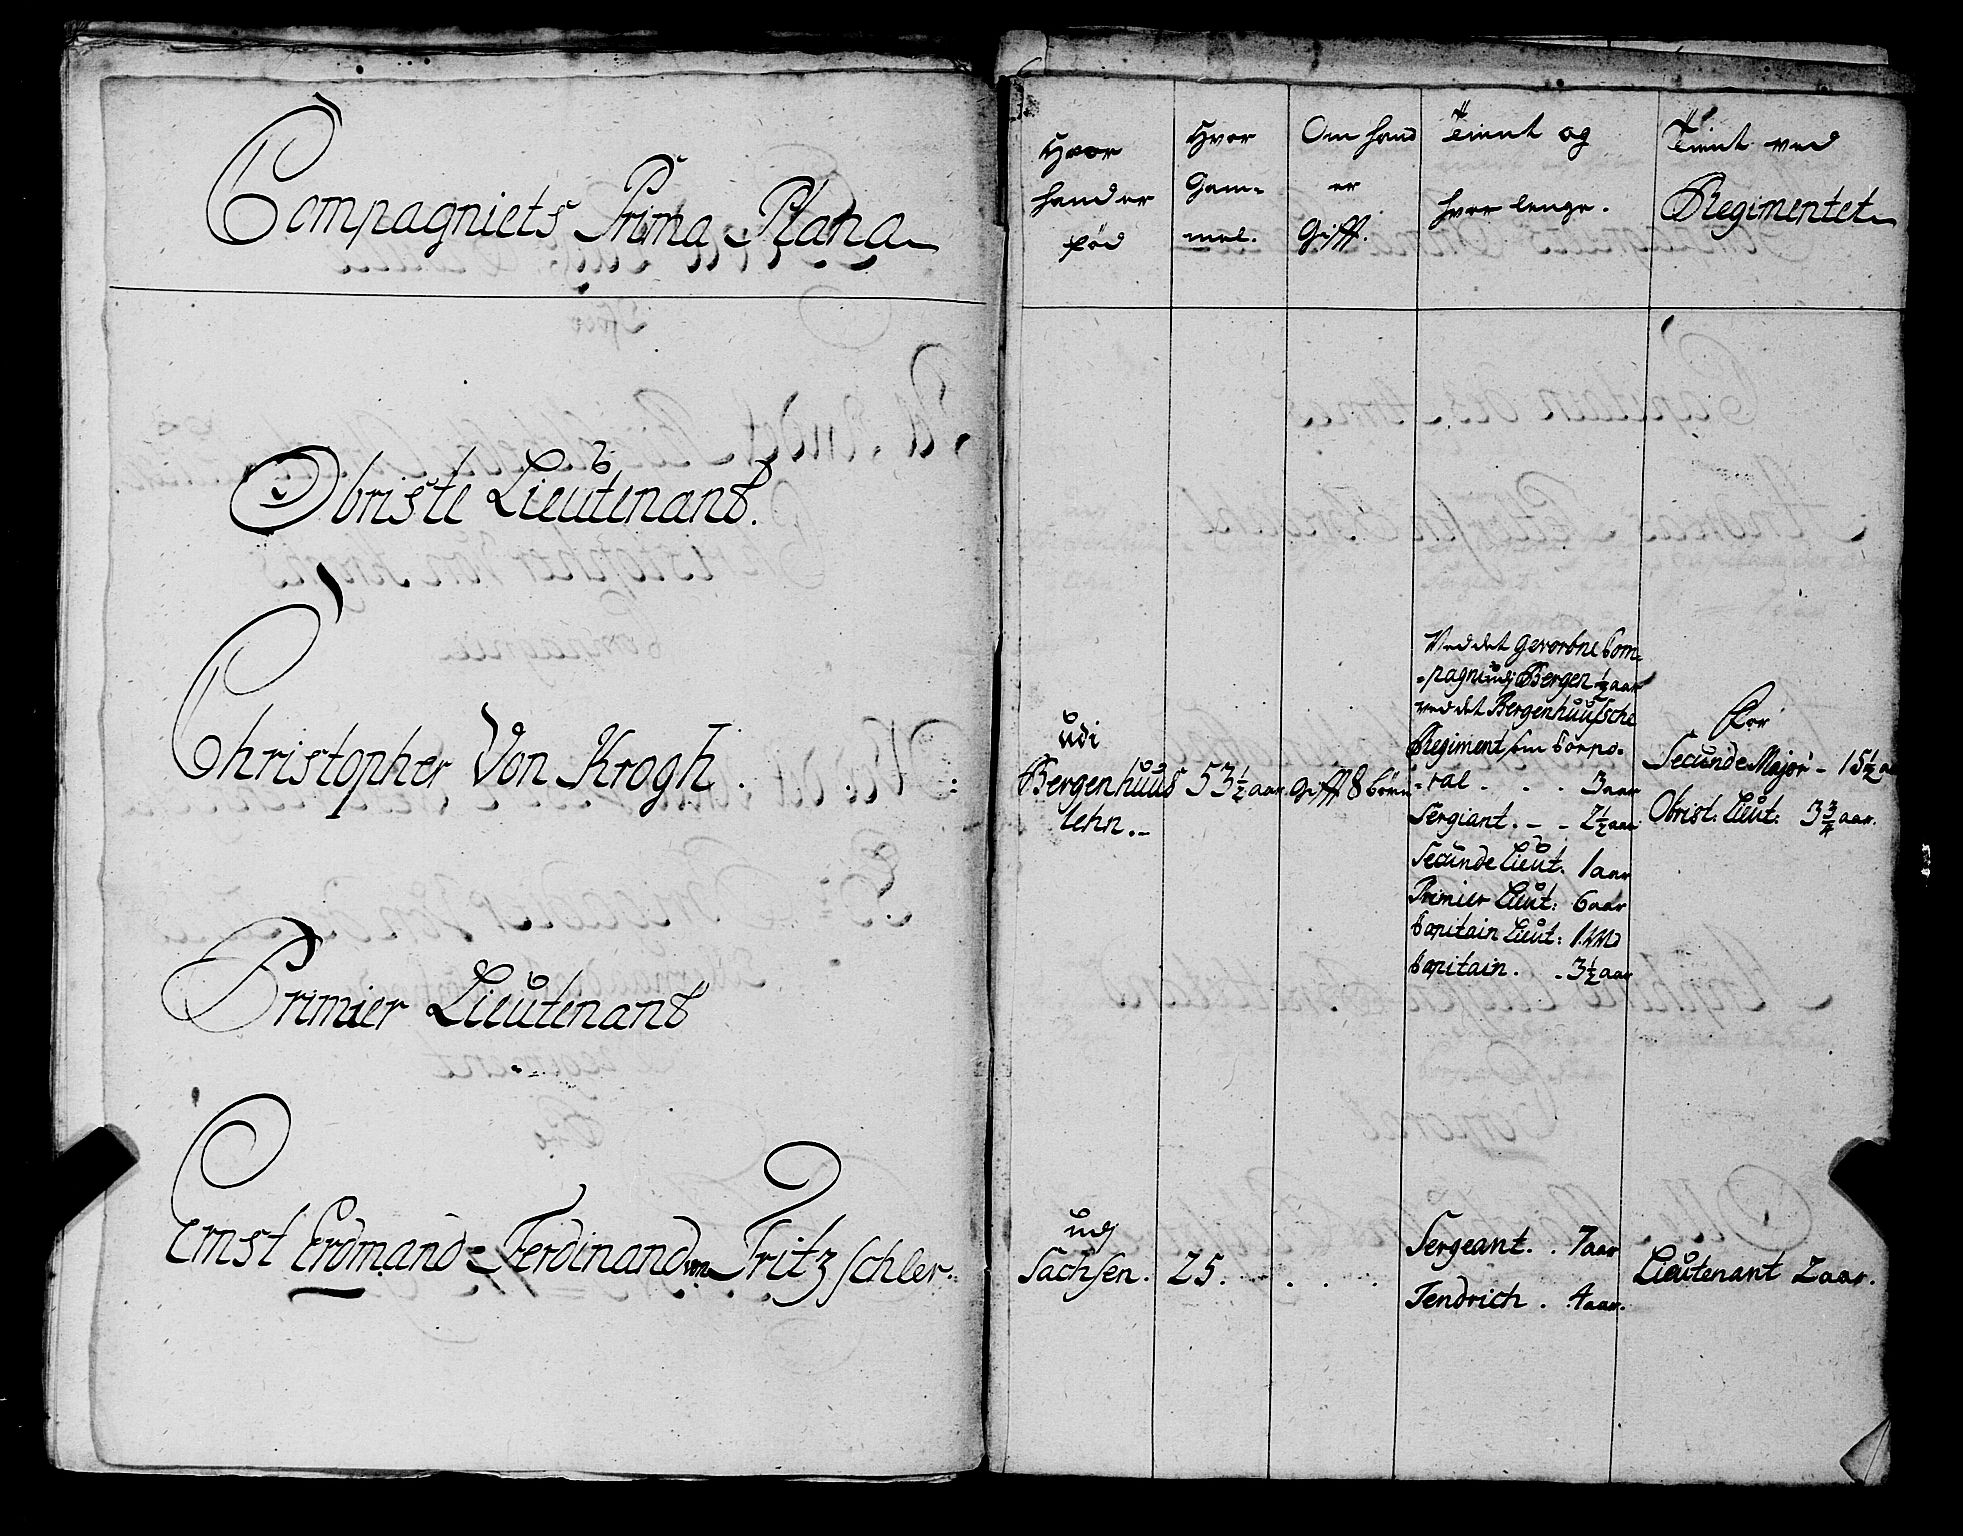 Compagniets Prima Plana
Obriste Lieutenant.
Christopher Von Krogh.
Primier Lieutenant
Ernst Erdmand Ferdinand von Fritzschler.
Hvor
hand er
fød
Hvor
Gam-
mel.
Om hand
er
Gifft.
Tient og
hvor lenge.
Tient ved
Regimentet
udi
Bergenhuus
lehn.
53½ aar.
Gifft 8 børn
Ved det Gevorbne Com-
pagnie udj Bergen ½ aar
ved det Bergenhuusche
Regiment som Corpo-
ral . . . 3 aar
Sergiant. - - 2½ aar
Secunde Lieut. 1 aar
Primier Lieut: 6 aar
Capitain Lieut: 1 Md
Capitain. - 3½ aar
For
Secunde Major - 15½ a
Obrist: Lieut: 3¾ aar.
udj
Sachsen.
25.
Sergeant. . 7 aar
Fendrich . 4 aar.
Lieutenant 2 aar.